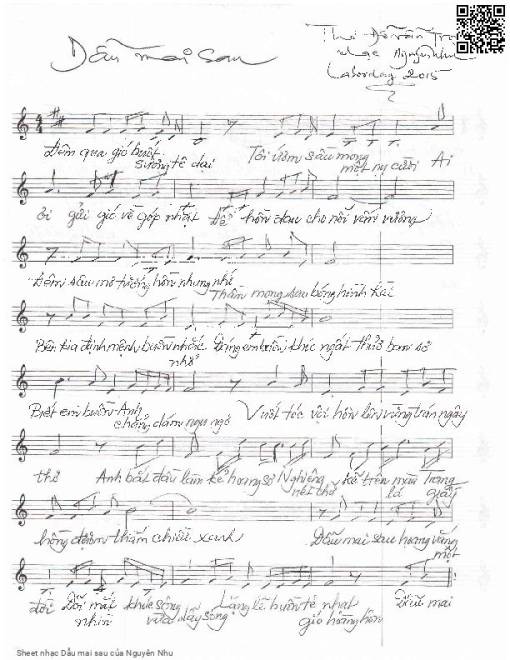 Dẫu mai sau
Thơ Đỗ Văn
nhạc Nguyên Nhu
Laborday 2015
Đêm qua gió buốt sương tê dại Tôi ươm sầu mong một nụ cười Ai
ơi gửi gió về góp nhặt Để hồn đau cho nỗi vấn vương
Đêm sầu mơ tưởng hồn nhung nhớ
Thầm mong sau bóng hình hài
Bên kia định mệnh buồn nhắc nhở Đừng em khóc ngất thưở ban sơ
Biết em buồn Anh chẳng dám ngu ngơ Vuốt tóc vội hôn lên vừng trán ngây
thơ Anh bắt đầu làm kẻ hoang sơ Nghiêng nét thơ kẻ trên màu lá Trang giấy
hồng đượm thắm chiều xanh Dẫu mai sau hoang vắng một
đời Đôi mắt nhìn khúc sông vừa dậy sóng Lặng lẽ buồn tẻ nhạt gió hoàng hôn Dẫu mai
Sheet nhạc Dẫu mai sau của Nguyên Nhu